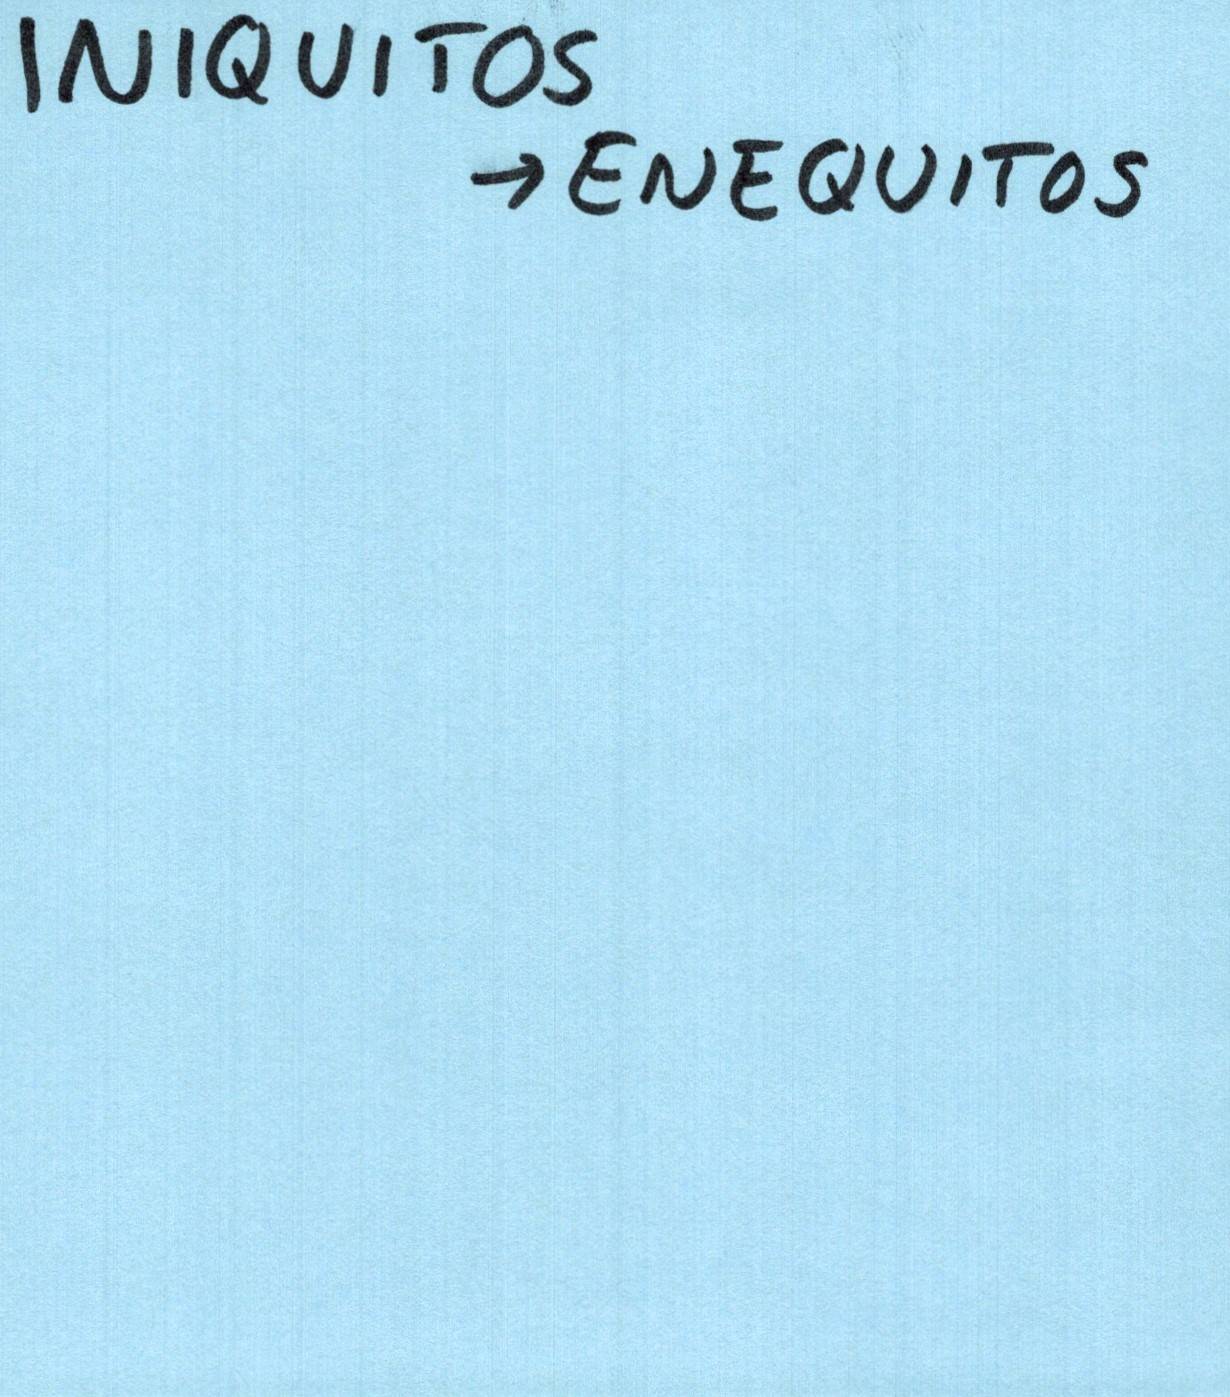 INIQUITOS
→ENEQUITOS